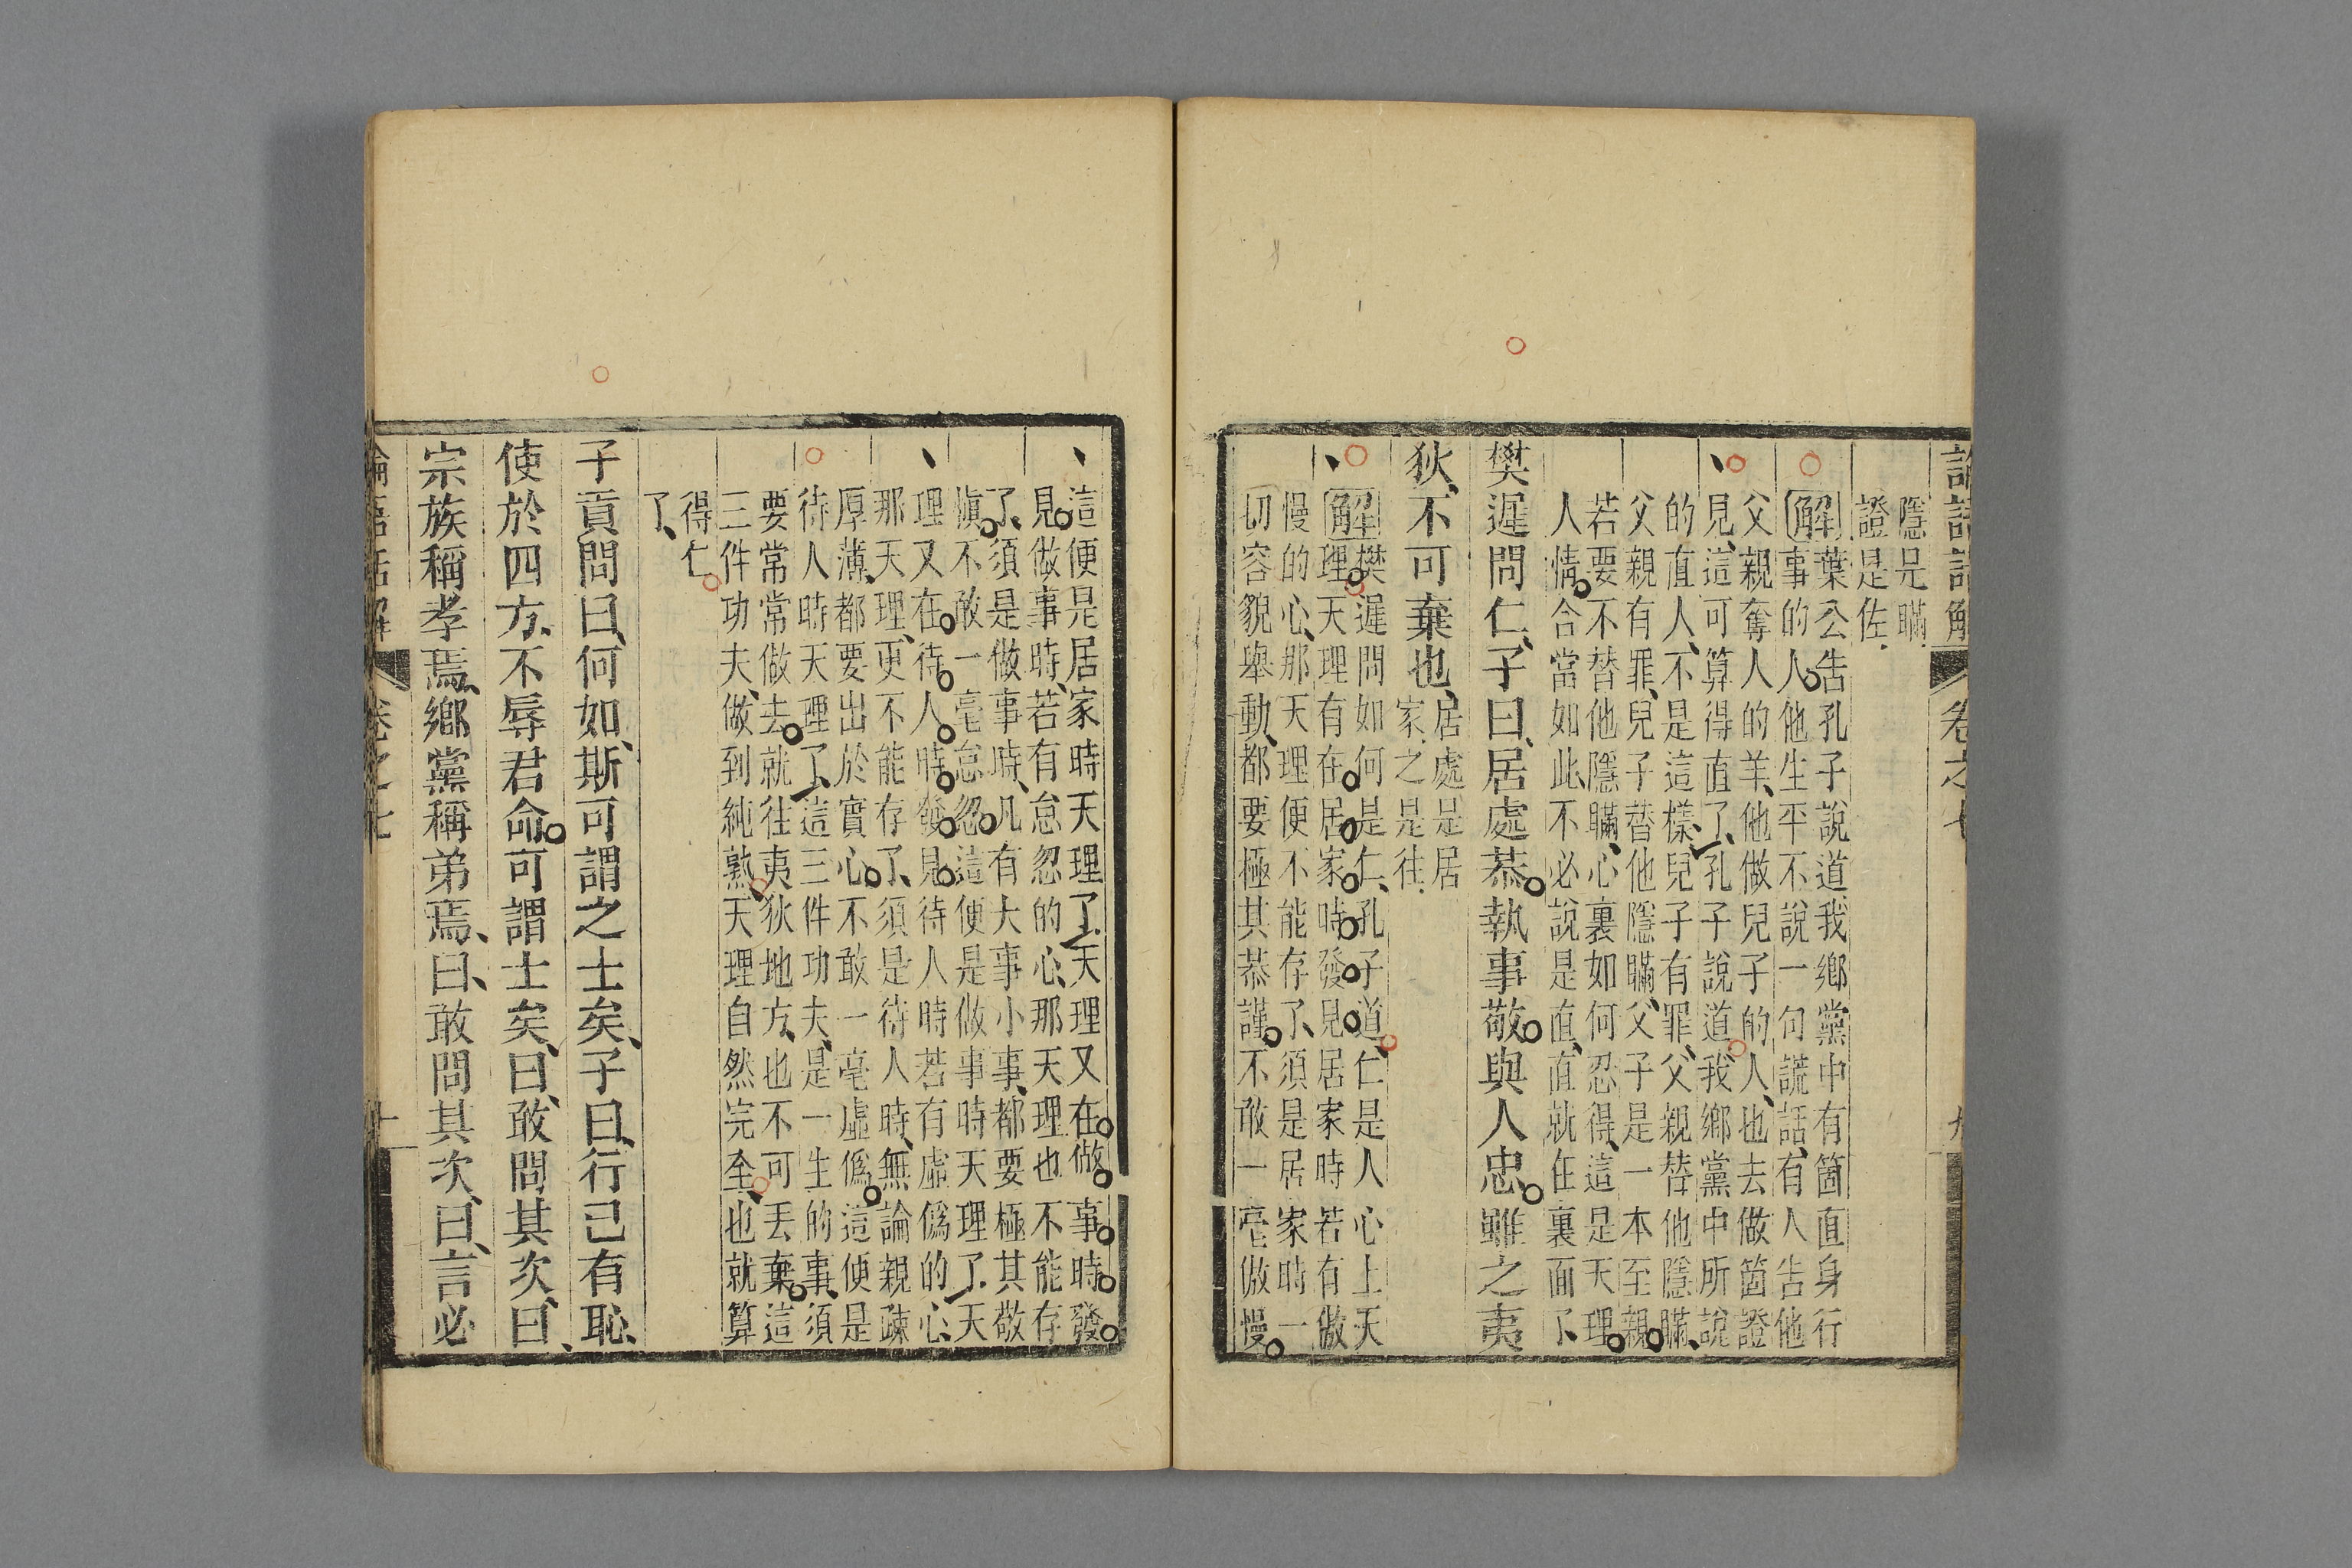 論語話解
卷之七
九
隱是瞞
證是佐
解葉公告孔子說道我鄉黨中有箇直身行
事的人他生平不說一句謊話有人告他
父親奪人的羊他做兒子的人也去做箇證
見這可算得直了孔子說道我鄉黨中所說
的直人不是這樣兒子有罪父親替他隱瞞
父親有罪兒子替他隱瞞父子是一本至親
若要不替他隱瞞心裏如何忍得這是天理
人情合當如此不必說是直直就在裏面了
樊遲問仁子曰居處恭執事敬與人忠雖之夷
狄不可棄也
居處是居
家之是往
解樊遲問如何是仁孔子道仁是人心上天
理天理有在居家時發見居家時若有傲
慢的心那天理便不能存了須是居家時一
切容貌舉動都要極其恭謹不敢一毫傲慢
這便是居家時天理了天理又在做事時發
見做事時若有怠忽的心那天理也不能存
了須是做事時凡有大事小事都要極其敬
慎不敢一毫怠忽這便是做事時天理了天
理又在待人時發見待人時若有虛僞的心
那天理更不能存了須是待人時無論親疎
厚薄都要出於實心不敢一毫虛僞這便是
待人時天理了這三件功夫是一生的事須
要常常做去就往夷狄地方也不可丟棄這
三件功夫做到純熟天理自然完全也就算
得仁
了
子貢問曰何如斯可謂之士矣子曰行己有恥
使於四方不辱君命可謂士矣曰敢問其次曰
宗族稱孝焉鄉黨稱弟焉曰敢問其次曰言必
論語話解
卷之七
十